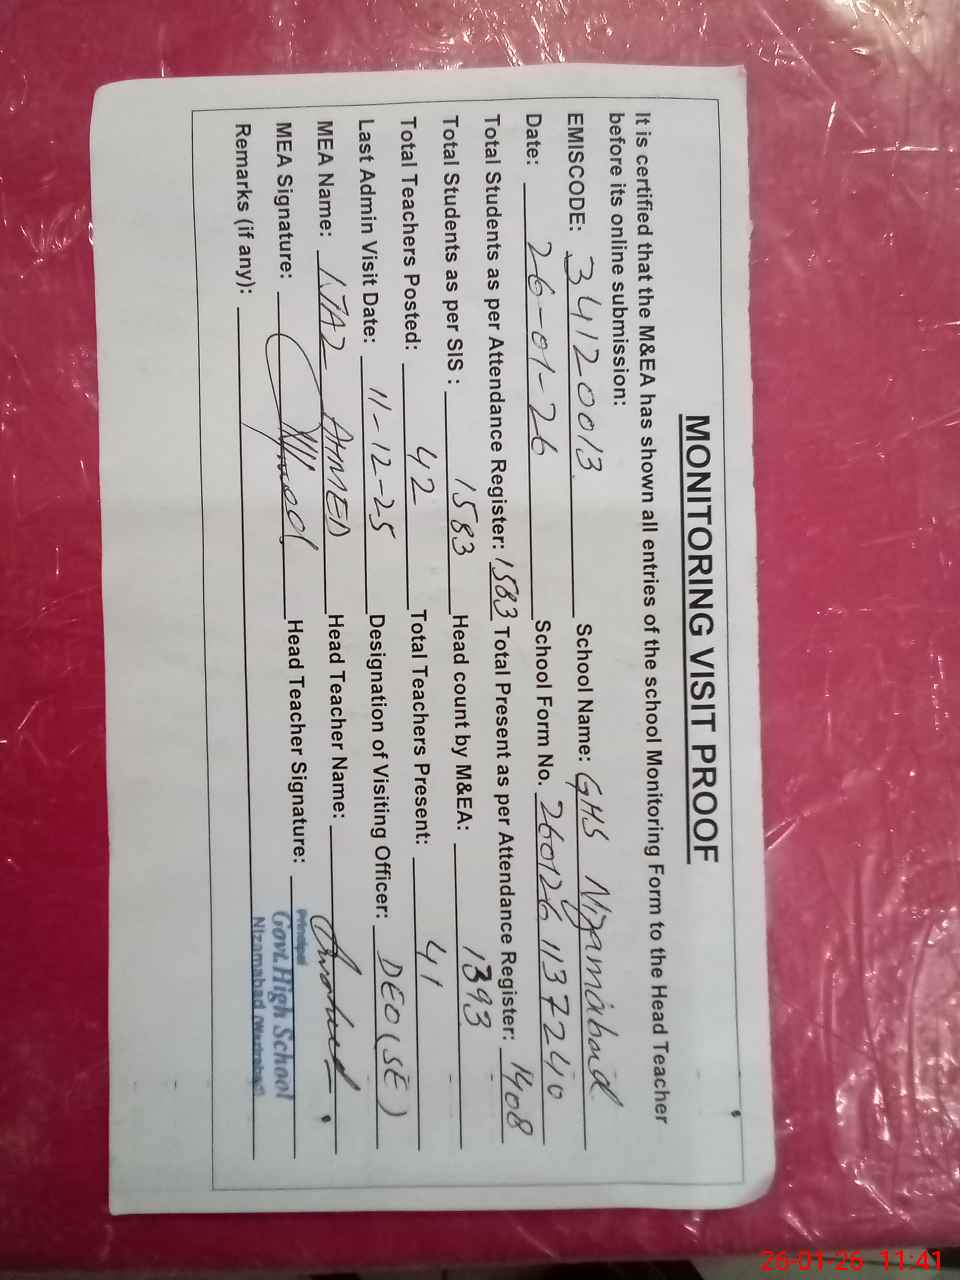 MONITORING VISIT PROOF
It is certified that the M&EA has shown all entries of the school Monitoring Form to the Head Teacher
before its online submission:
EMISCODE: 34120013 School Name: GHS Nizamabad
Date: 26-01-26 School Form No. 260126 1137240
Total Students as per Attendance Register: 1583 Total Present as per Attendance Register: 1408
Total Students as per SIS : 1583 Head count by M&EA: 1393
Total Teachers Posted: 42 Total Teachers Present: 41
Last Admin Visit Date: 11-12-25 Designation of Visiting Officer: DEO (SE)
MEA Name: IJAZ AHMED Head Teacher Name:
MEA Signature: Head Teacher Signature:
Principal
Govt. High School
Remarks (if any): Nizamabad (Wazirabad)
26-01-26 11:41